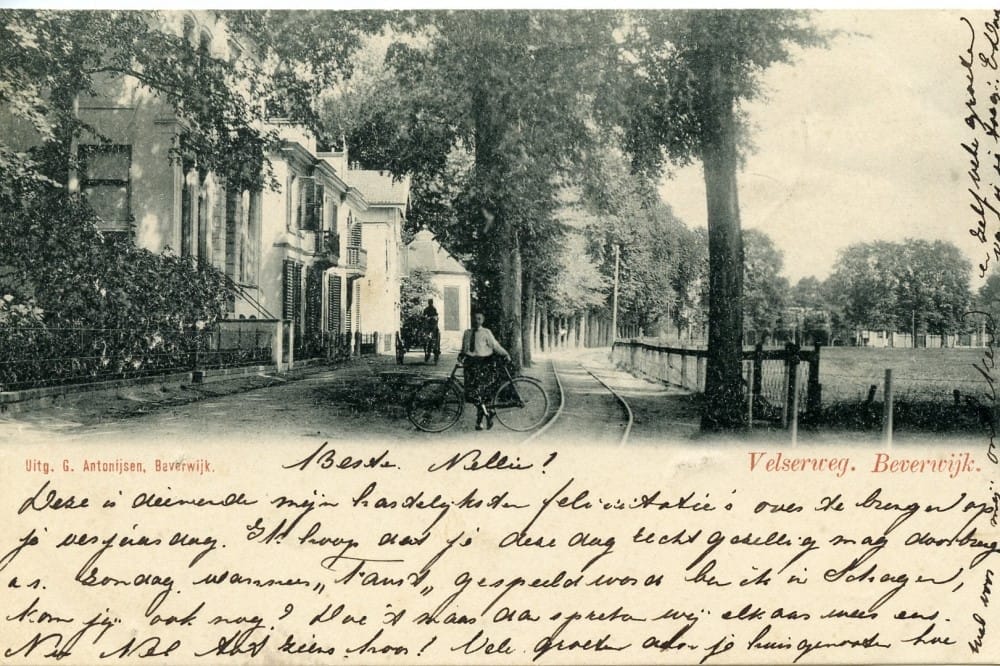 Uitg. G. Antonijsen, Beverwijk.
Velserweg. Beverwijk.
Beste. Nellie!
Deze is dienende mijn hartelijkste felicitatie's over te brengen op
je verjaardag. Ik hoop dat je deze dag recht gezellig mag doorbreng
a.s. Zondag wanneer „Faust„ gespeeld word ben ik in Schagen,
kom jij ook nog? Doe 't maar dan spreken wij elkaar weer eens.
Nu Nel Tot ziens hoor! Vele groeten aan je huisgenooten hoe
zelf vele groete